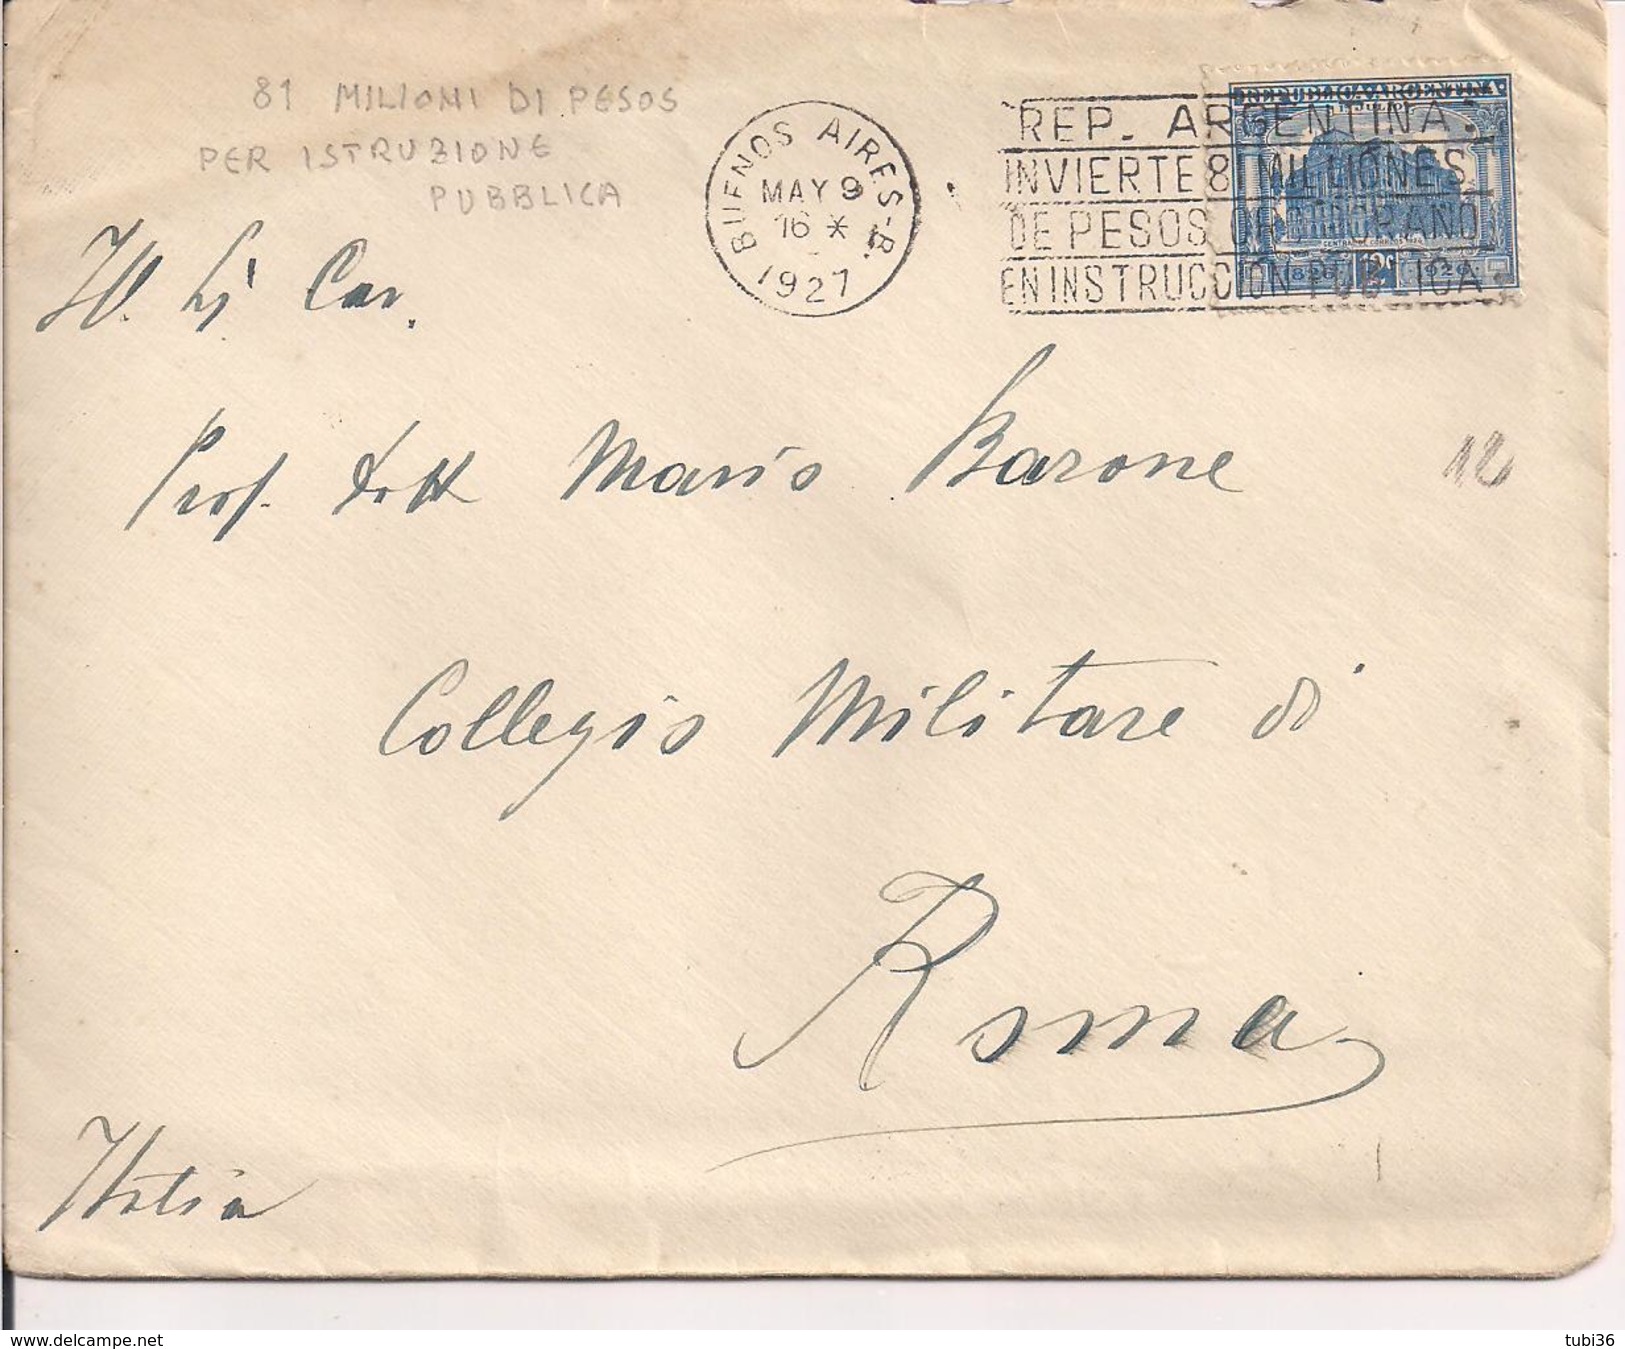 81 MILIONI DI PESOS
PER ISTRUZIONE
PUBBLICA
BUENOS AIRES - B.
MAY 9
16 *
1927
REP. ARGENTINA:
INVIERTE 81 MILLIONES
DE PESOS ORO
EN INSTRUCCION PUBLICA
REPUBLICA ARGENTINA
CENTRAL DE CORREOS
1826 12c 1926
Car.
Prof. Dott Mario Barone
12
Collegio Militare di
Roma
Italia
tubi36
www.delcampe.net